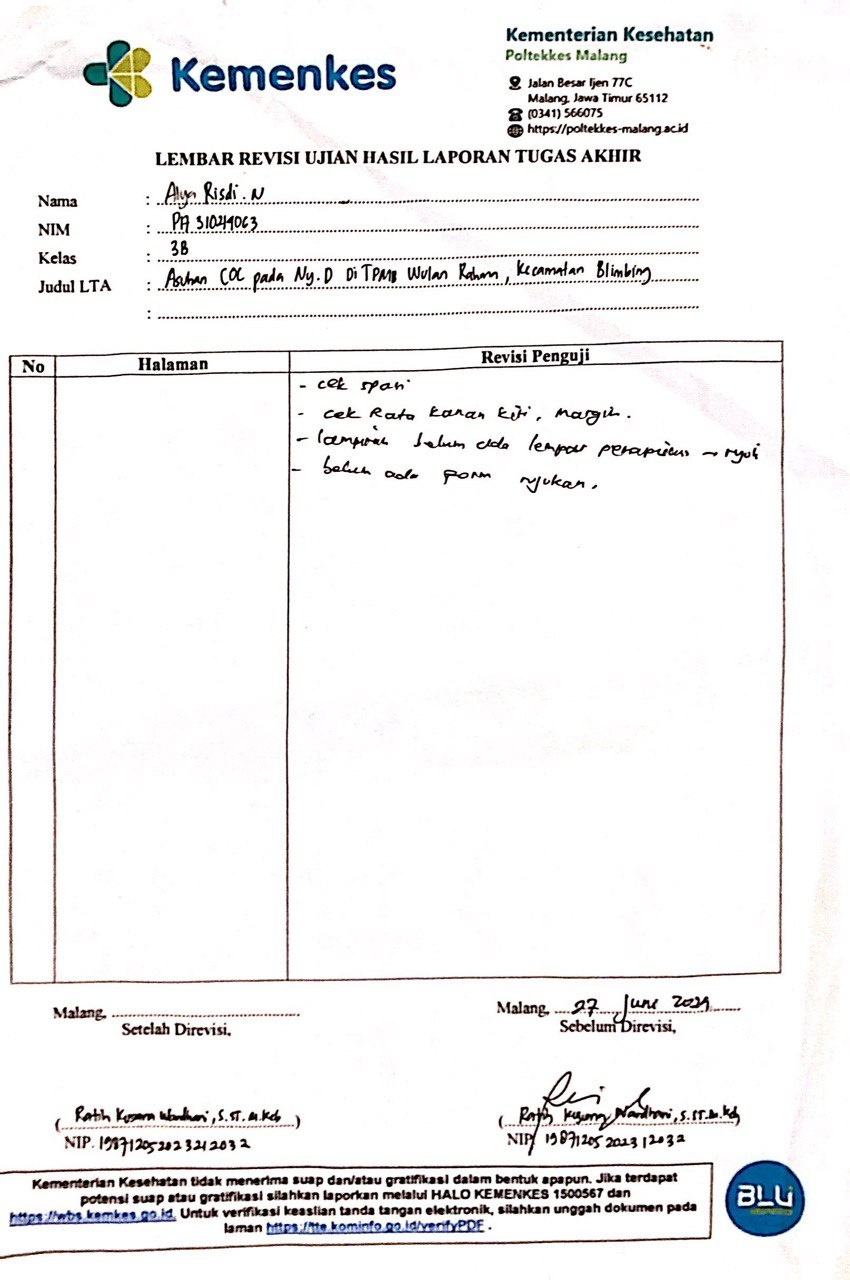 Kemenkes
Kementerian Kesehatan
Poltekkes Malang
Jalan Besar Ijen 77C
Malang, Jawa Timur 65112
(0341) 566075
https://poltekkes-malang.ac.id
LEMBAR REVISI UJIAN HASIL LAPORAN TUGAS AKHIR
Nama : Alya Risdi . N
NIM :
Kelas : 3B
Judul LTA : Asuhan COC pada Ny. D Di TPMB Wulan Rahma, Kecamatan Blimbing
:
No Halaman Revisi Penguji
- cek
- cek Rata kanan kiri, margin.
- lampiran belum ada
- belum ada form rujukan.
Malang, Malang, 27 Juni 2024
Setelah Direvisi, Sebelum Direvisi,
(Ratih Kusuma Wardhani, S.ST.M.Keb) (Ratih Kusuma Wardhani, S.ST.M.Keb)
NIP. NIP
Kementerian Kesehatan tidak menerima suap dan/atau gratifikasi dalam bentuk apapun. Jika terdapat
potensi suap atau gratifikasi silahkan laporkan melalui HALO KEMENKES 1500567 dan
https://wbs.kemkes.go.id. Untuk verifikasi keaslian tanda tangan elektronik, silahkan unggah dokumen pada
laman https://tte.kominfo.go.id/verifyPDF .
BLU